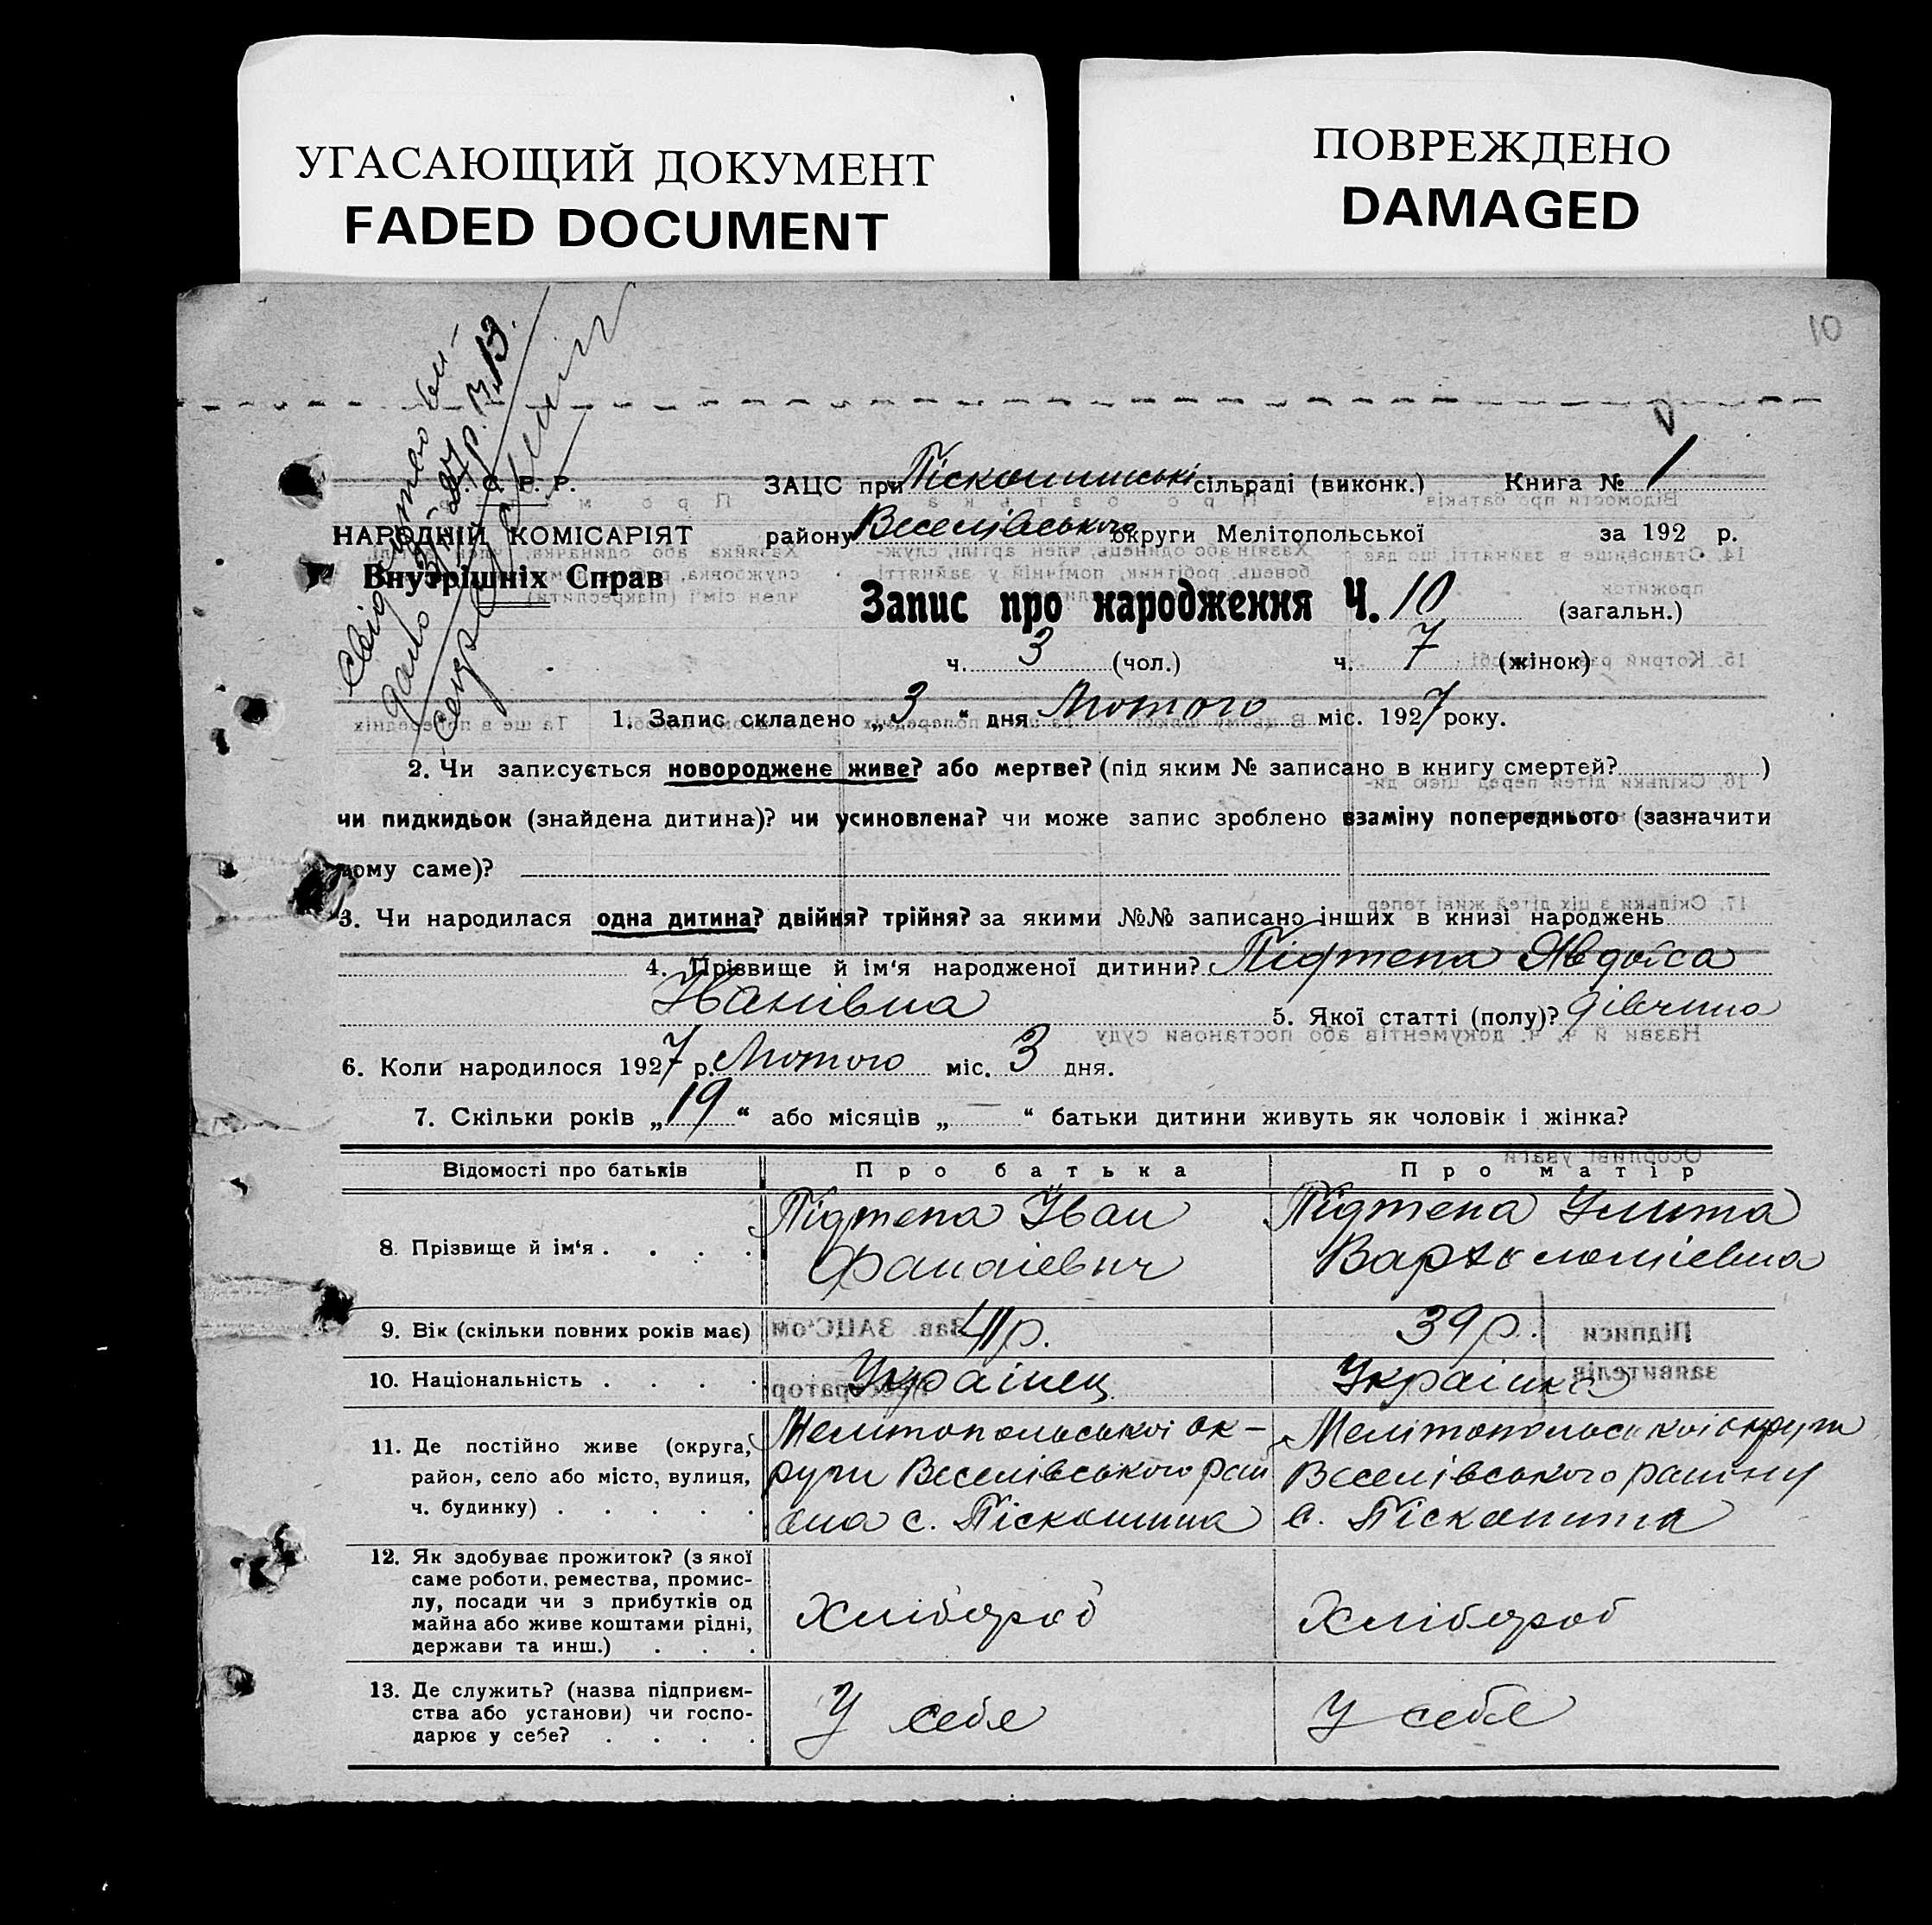 УГАСАЮЩИЙ ДОКУМЕНТ
FADED DOCUMENT
ПОВРЕЖДЕНО
DAMAGED
10
С. Р. Р.
НАРОДНІЙ КОМІСАРІЯТ
Внутрішніх Справ
ЗАЦС при Піскошинські сільраді (виконк.) Книга № 1
району Веселівського округи Мелітопольської за 192 р.
Запис про народження Ч. 10 (загальн.)
ч. 3 (чол.) ч. 7 (жінок)
1. Запис складено „3“ дня Лютого міс. 1927 року.
2. Чи записується новороджене живе? або мертве? (під яким № записано в книгу смертей? )
чи пидкидьок (знайдена дитина)? чи усиновлена? чи може запис зроблено взаміну попереднього (зазначити
чому саме)?
3. Чи народилася одна дитина? двійня? трійня? за якими №№ записано інших в книзі народжень
4. Прізвище й ім‘я народженої дитини? Підтепа Явдоса
Іванівна 5. Якої статті (полу)? дівчина
6. Коли народилося 1927 р. Лютого міс. 3 дня.
7. Скільки років „19“ або місяців „—“ батьки дитини живуть як чоловік і жінка?
Відомості про батьків Про батька Про матір
8. Прізвище й ім‘я . . . .
Підтепа Іван
Фанаієвич
Підтепа Улита
Вартоломієвна
9. Вік (скільки повних років має) 41 р. 39 р.
10. Національність . . . . Українец Українка
11. Де постійно живе (округа,
район, село або місто, вулиця,
ч. будинку) . . . . .
Мелитопольської ок-
руги Веселівського рай
она с. Піскошина
Мелітопольської округи
Веселівського району
с. Піскошина
12. Як здобуває прожиток? (з якої
саме роботи, ремества, промис-
лу, посади чи з прибутків од
майна або живе коштами рідні,
держави та инш.) . . .
Хлібороб
Хлібороб
13. Де служить? (назва підприєм-
ства або установи) чи госпо-
дарює у себе? . . . .
У себе
У себе